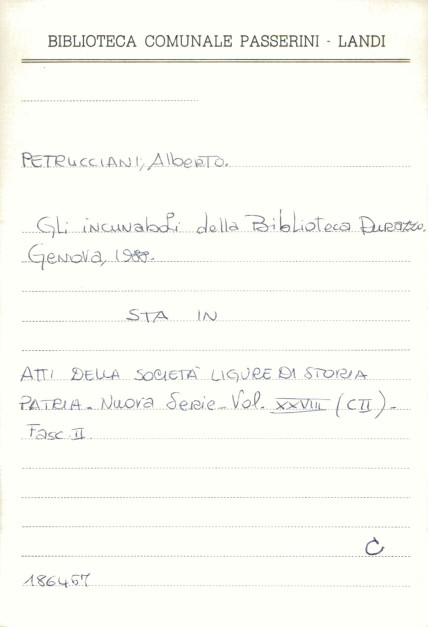 BIBLIOTECA COMUNALE PASSERINI - LANDI
PETRUCCIANI, Alberto.
Gli incunaboli della Biblioteca Durazzo.
Genova, 1988.
STA IN
ATTI DELLA SOCIETÀ LIGURE DI STORIA
PATRIA - Nuova Serie - Vol. XXVIII (CII) -
Fasc. II
C
186457